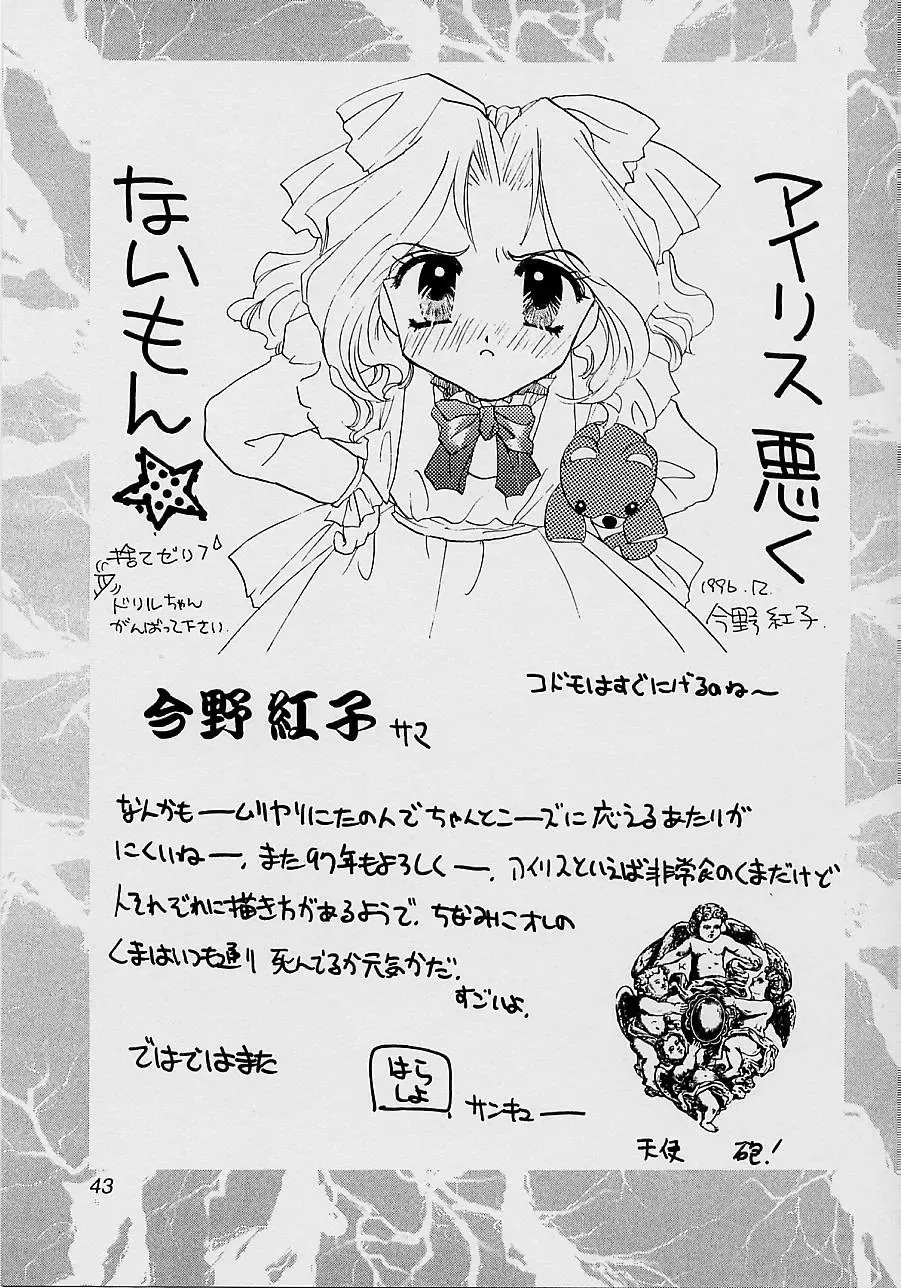 アイリス悪く
ないもん☆
1996.12.
今野紅子.
捨てゼリフ
ドリルちゃん
がんばって下さい.
コドモはすぐにげるのね〜
今野紅子サマ
なんかもームリヤリにたのんでちゃんとニーズに応えるあたりが
にくいねー,また97年もよろしくー,アイリスといえば非常食のくまだけど
人それぞれに描き方があるようで,ちなみにオレの
くまはいつも通り死んでるか元気かだ.
すごいよ.
ではではまた
はら
しよ
サンキューー
天使 砲!
43